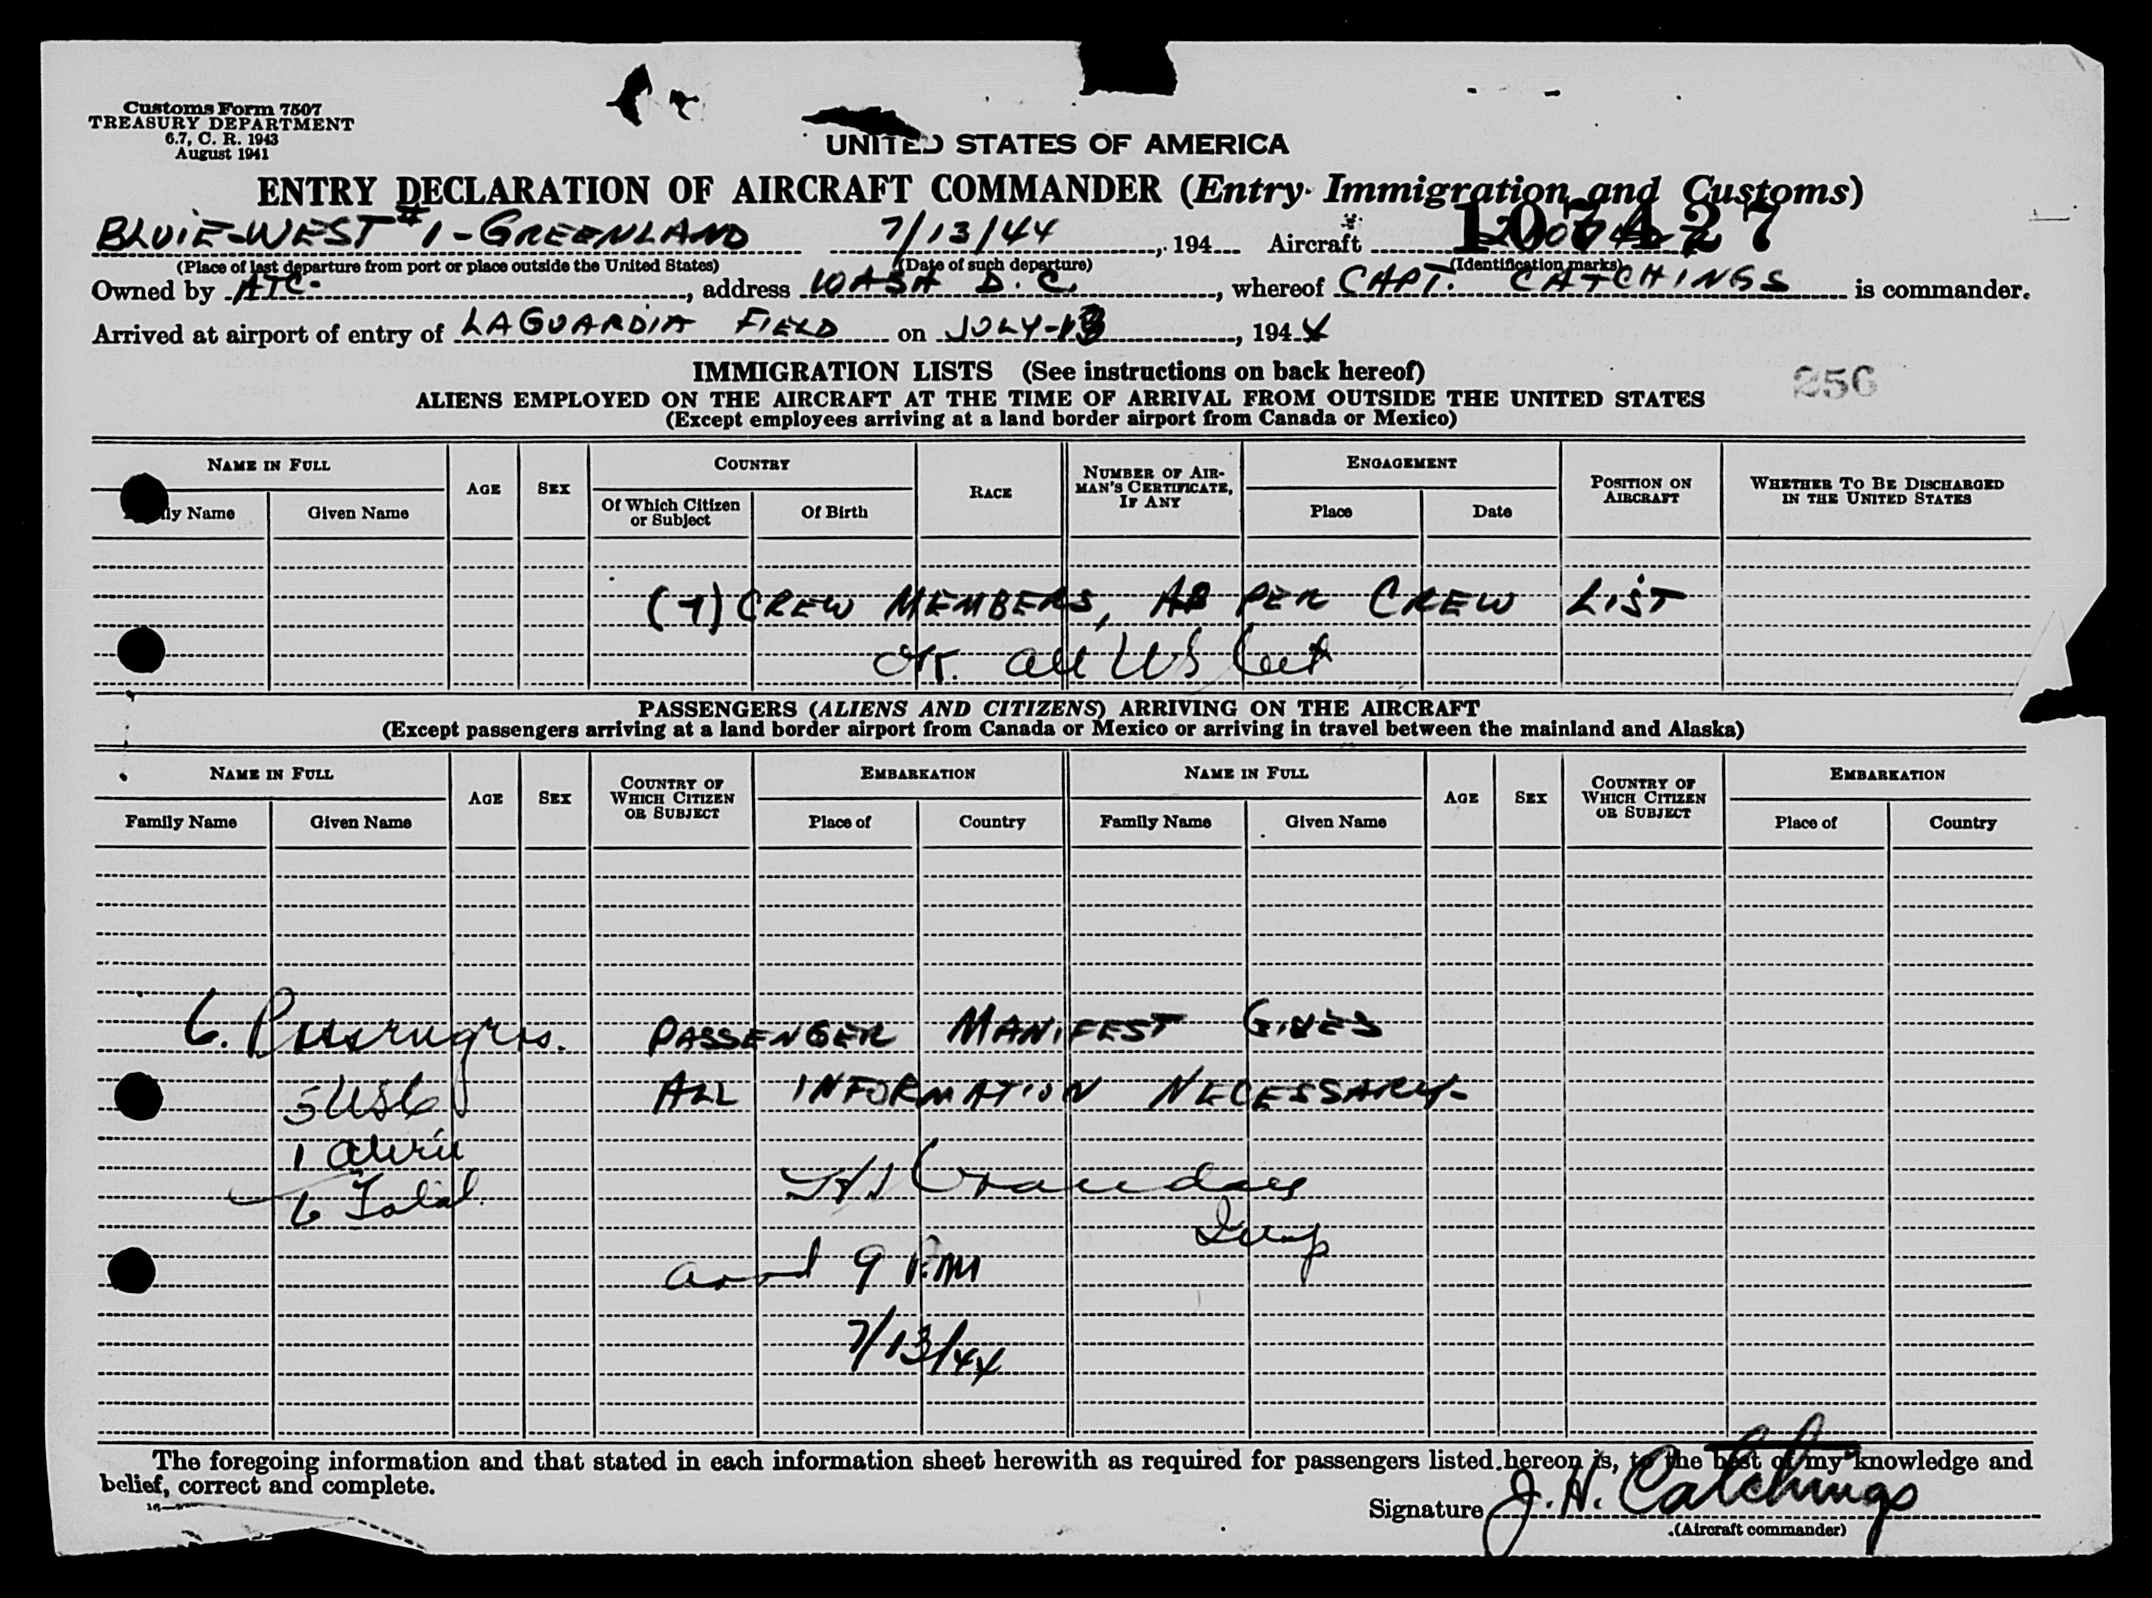 Customs Form 7507
TREASURY DEPARTMENT
6.7, C. R. 1943
August 1941
UNITED STATES OF AMERICA
ENTRY DECLARATION OF AIRCRAFT COMMANDER (Entry Immigration and Customs)
BLUIE-WEST #1-GREENLAND 7/13/44, 194 Aircraft 107427
(Place of last departure from port or place outside the United States) (Date of such departure) (Identification marks)
Owned by ATC., address WASH D.C., whereof CAPT. CATCHINGS is commander.
Arrived at airport of entry of LAGUARDIA FIELD on JULY-13, 1944
IMMIGRATION LISTS (See instructions on back hereof)
256
ALIENS EMPLOYED ON THE AIRCRAFT AT THE TIME OF ARRIVAL FROM OUTSIDE THE UNITED STATES
(Except employees arriving at a land border airport from Canada or Mexico)
NAME IN FULL AGE SEX COUNTRY RACE NUMBER OF AIRMAN'S CERTIFICATE, IF ANY ENGAGEMENT POSITION ON AIRCRAFT WHETHER TO BE DISCHARGED IN THE UNITED STATES
ly Name Given Name Of Which Citizen or Subject Of Birth Place Date
(7) CREW MEMBERS, AS PER CREW LIST
all US
PASSENGERS (ALIENS AND CITIZENS) ARRIVING ON THE AIRCRAFT
(Except passengers arriving at a land border airport from Canada or Mexico or arriving in travel between the mainland and Alaska)
NAME IN FULL AGE SEX COUNTRY OF WHICH CITIZEN OR SUBJECT EMBARKATION NAME IN FULL AGE SEX COUNTRY OF WHICH CITIZEN OR SUBJECT EMBARKATION
Family Name Given Name Place of Country Family Name Given Name Place of Country
6. Passengers. PASSENGER MANIFEST GIVES
5 USC ALL INFORMATION NECESSARY-
1 alien
6 Total.
Insp
arrd 9 P.M
7/13/44
The foregoing information and that stated in each information sheet herewith as required for passengers listed hereon is, to the best of my knowledge and
belief, correct and complete.
Signature J. H. Catchings
(Aircraft commander)